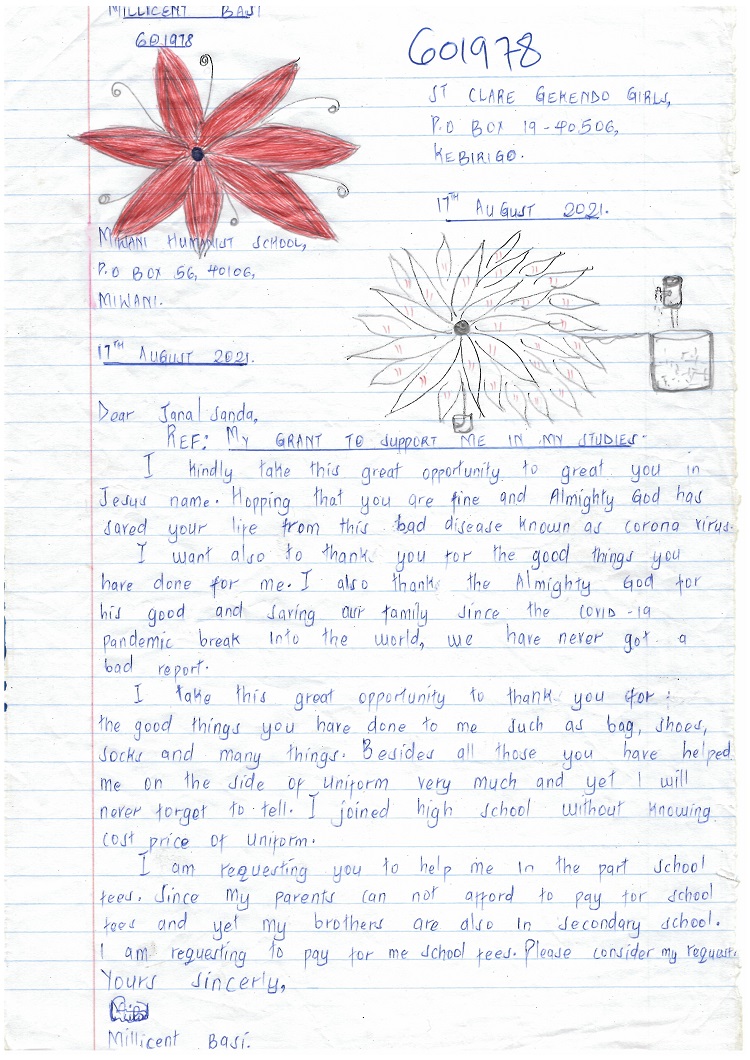 MILLICENT BASI
601978
601978
ST CLARE GEKENDO GIRLS,
P.O BOX 19-40506,
KEBIRIGO.
17TH AUGUST 2021.
MIWANI HUMANIST SCHOOL,
P.O BOX 56, 40106,
MIWANI.
17TH AUGUST 2021.
Dear Jana/Sanda,
REF: MY GRANT TO SUPPORT ME IN MY STUDIES.
I kindly take this great opportunity to great you in
Jesus name. Hopping that you are fine and Almighty God has
saved your life from this bad disease known as corona virus.
I want also to thank you for the good things you
have done for me. I also thank the Almighty God for
his good and saving our family since the COVID-19
pandemic break into the world, we have never got a
bad report.
I take this great opportunity to thank you for
the good things you have done to me such as bag, shoes,
socks and many things. Besides all those you have helped
me on the side of uniform very much and yet I will
never forget to tell. I joined high school without knowing
cost price of uniform.
I am requesting you to help me in the part school
fees. Since my parents can not afford to pay for school
fees and yet my brothers are also in secondary school.
I am requesting to pay for me school fees. Please consider my request.
Yours sincerly,
Millicent Basi.